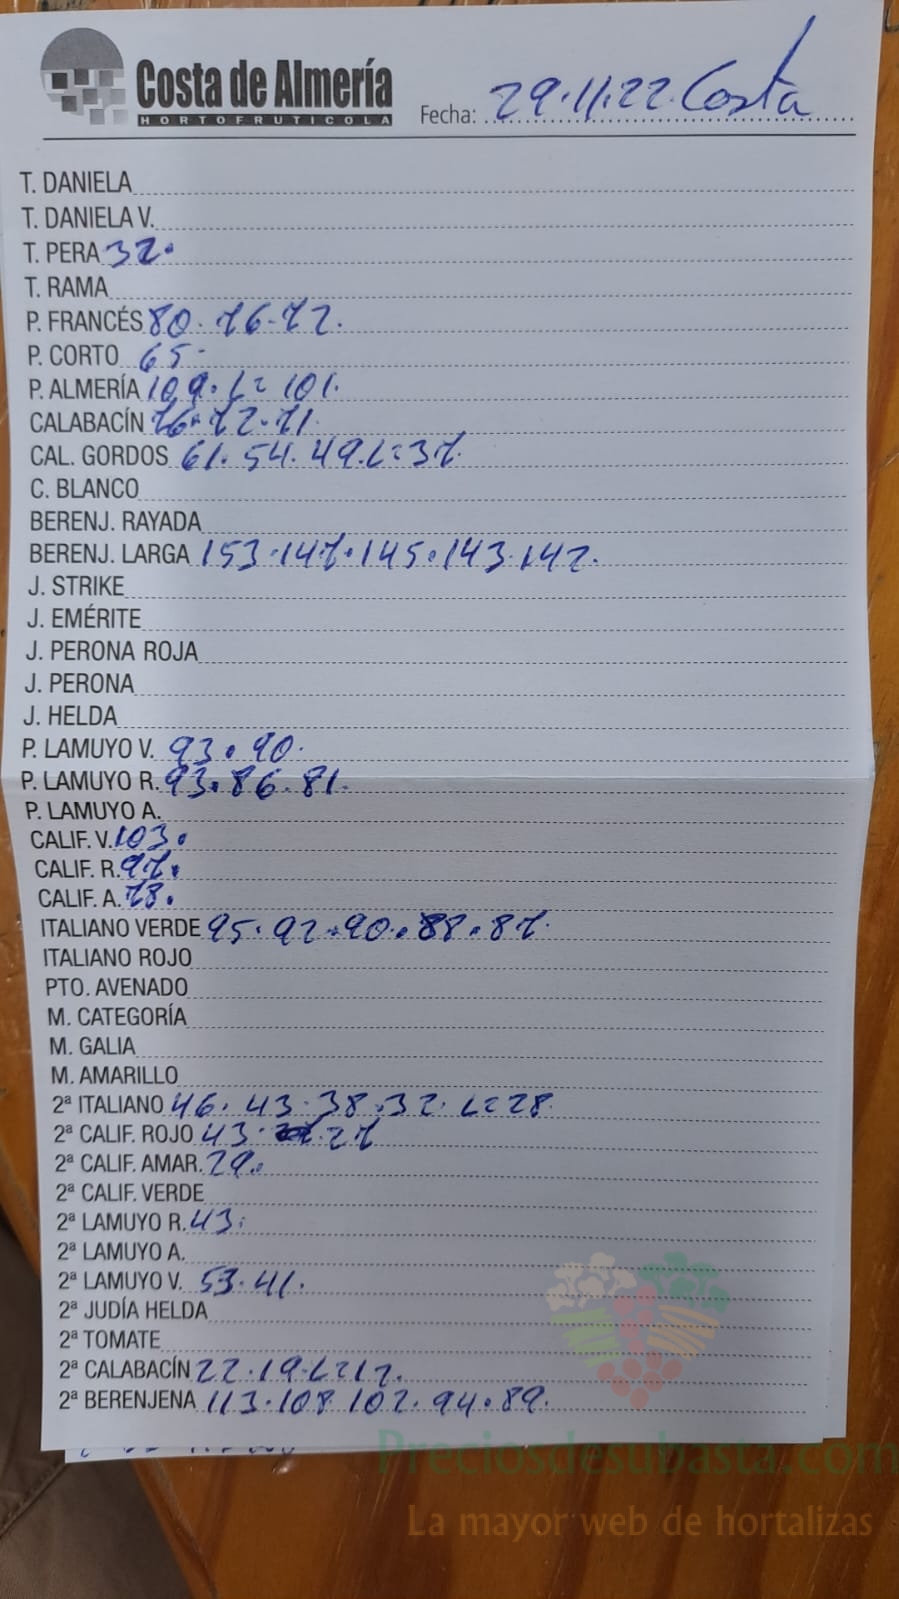 Costa de Almería
HORTOFRUTICOLA
Fecha: 29.11.22. Costa
T. DANIELA
T. DANIELA V.
T. PERA 32.
T. RAMA
P. FRANCÉS 80. 76-72.
P. CORTO 65-
P. ALMERÍA 109. L= 101.
CALABACÍN 76. 72. 71.
CAL. GORDOS 61. 54. 49. L= 37.
C. BLANCO
BERENJ. RAYADA
BERENJ. LARGA 153.147.145.143.142.
J. STRIKE
J. EMÉRITE
J. PERONA ROJA
J. PERONA
J. HELDA
P. LAMUYO V. 93. 90.
P. LAMUYO R. 93. 86. 81.
P. LAMUYO A.
CALIF. V. 103.
CALIF. R. 97.
CALIF. A. 78.
ITALIANO VERDE 95. 92. 90. 88. 87.
ITALIANO ROJO
PTO. AVENADO
M. CATEGORÍA
M. GALIA
M. AMARILLO
2ª ITALIANO 46. 43. 38. 32. L= 28.
2ª CALIF. ROJO 43. 27
2ª CALIF. AMAR. 29.
2ª CALIF. VERDE
2ª LAMUYO R. 43.
2ª LAMUYO A.
2ª LAMUYO V. 53. 41.
2ª JUDÍA HELDA
2ª TOMATE
2ª CALABACÍN 22. 19. L= 17.
2ª BERENJENA 113. 108 102. 94. 89.
Preciosdesubasta.com
La mayor web de hortalizas